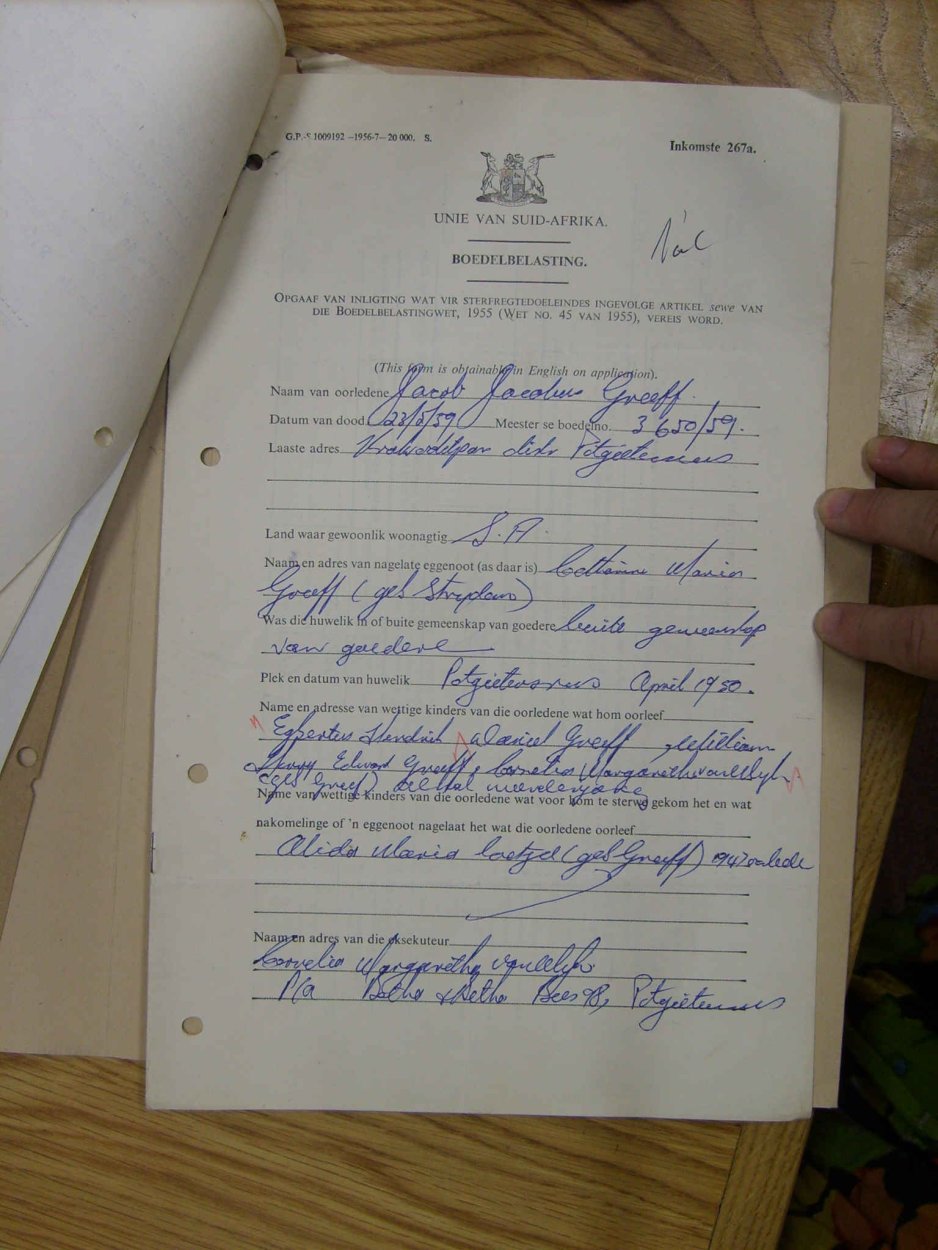 G.P.-S 1009192 —1956-7— 20 000. S.
Inkomste 267a.
UNIE VAN SUID-AFRIKA.
BOEDELBELASTING.
OPGAAF VAN INLIGTING WAT VIR STERFREGTEDOELEINDES INGEVOLGE ARTIKEL sewe VAN
DIE BOEDELBELASTINGWET, 1955 (WET NO. 45 VAN 1955), VEREIS WORD.
(This form is obtainable in English on application).
Naam van oorledene Jacob Jacobus Greeff.
Datum van dood 23/5/59 Meester se boedelno. 3650/59.
Laaste adres distr Potgietersrus
Land waar gewoonlik woonagtig S.A.
Naam en adres van nagelate eggenoot (as daar is) Maria
Greeff (geb Strydom)
Was die huwelik in of buite gemeenskap van goedere buite gemeenskap
van goedere
Plek en datum van huwelik Potgietersrus April 1950.
Name en adresse van wettige kinders van die oorledene wat hom oorleef
Egbertus Hendrik Daniel Greeff, William
Henry Edward Greeff, Cornelia Margaretha van Wyk
(geb Greeff) almal meerderjarig
Name van wettige kinders van die oorledene wat voor hom te sterwe gekom het en wat
nakomelinge of 'n eggenoot nagelaat het wat die oorledene oorleef
Alida Maria Coetzee (geb Greeff) 1947 oorlede
Naam en adres van die eksekuteur
Cornelia Margaretha van Wyk
P/a Botha & Botha Bus 98, Potgietersrus